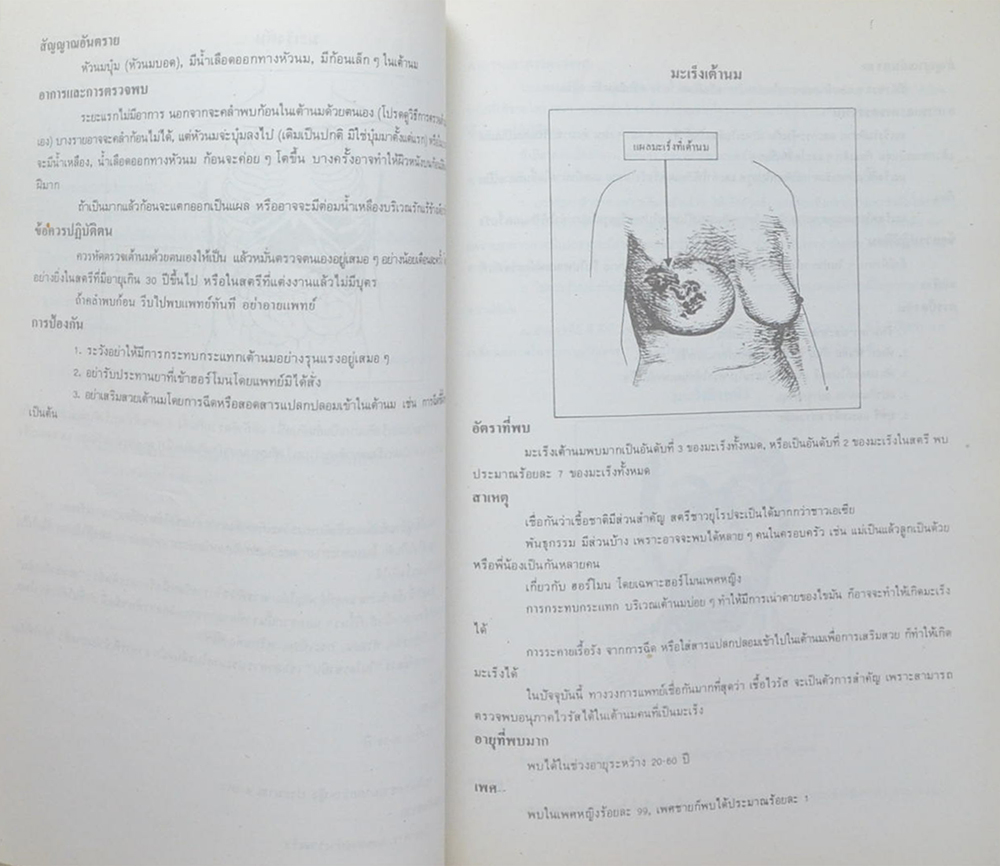 สัญญาณอันตราย
หัวนมบุ๋ม (หัวนมบอด), มีน้ำเลือดออกทางหัวนม, มีก้อนเล็ก ๆ ในเต้านม
อาการและการตรวจพบ
ระยะแรกไม่มีอาการ นอกจากจะคลำพบก้อนในเต้านมด้วยตนเอง (โปรดดูวิธีการตรวจเต้า
เอง) บางรายอาจจะคลำก้อนไม่ได้, แต่หัวนมจะบุ๋มลงไป (เดิมเป็นปกติ มิใช่บุ๋มมาตั้งแต่แรก)
จะมีน้ำเหลือง, น้ำเลือดออกทางหัวนม ก้อนจะค่อย ๆ โตขึ้น บางครั้งอาจทำให้ผิวหนังบน
ผิมาก
ถ้าเป็นมากแล้วก้อนจะแตกออกเป็นแผล หรืออาจจะมีต่อมน้ำเหลืองบริเวณรักแร้
ข้อควรปฏิบัติตน
ควรหัดตรวจเต้านมด้วยตนเองให้เป็น แล้วหมั่นตรวจตนเองอยู่เสมอ ๆ อย่างน้อยเดือนละครั้ง
อย่างยิ่งในสตรีที่มีอายุเกิน 30 ปีขึ้นไป หรือในสตรีที่แต่งงานแล้วไม่มีบุตร
ถ้าคลำพบก้อน รีบไปพบแพทย์ทันที อย่าอายแพทย์
การป้องกัน
1. ระวังอย่าให้มีการกระทบกระแทกเต้านมอย่างรุนแรงอยู่เสมอ ๆ
2. อย่ารับประทานยาที่เข้าฮอร์โมนโดยแพทย์มิได้สั่ง
3. อย่าเสริมสวยเต้านมโดยการฉีดหรือสอดสารแปลกปลอมเข้าในเต้านม เช่น
เป็นต้น
มะเร็งเต้านม
แผลมะเร็งที่เต้านม
อัตราที่พบ
มะเร็งเต้านมพบมากเป็นอันดับที่ 3 ของมะเร็งทั้งหมด, หรือเป็นอันดับที่ 2 ของมะเร็งในสตรี พบ
ประมาณร้อยละ 7 ของมะเร็งทั้งหมด
สาเหตุ
เชื่อกันว่าเชื้อชาติมีส่วนสำคัญ สตรีชาวยุโรปจะเป็นได้มากกว่าชาวเอเซีย
พันธุกรรม มีส่วนบ้าง เพราะอาจจะพบได้หลาย ๆ คนในครอบครัว เช่น แม่เป็นแล้วลูกเป็นด้วย
หรือพี่น้องเป็นกันหลายคน
เกี่ยวกับ ฮอร์โมน โดยเฉพาะฮอร์โมนเพศหญิง
การกระทบกระแทก บริเวณเต้านมบ่อย ๆ ทำให้มีการเน่าตายของไขมัน ก็อาจจะทำให้เกิดมะเร็ง
ได้
การระคายเรื้อรัง จากการฉีด หรือใส่สารแปลกปลอมเข้าไปในเต้านมเพื่อการเสริมสวย ก็ทำให้เกิด
มะเร็งได้
ในปัจจุบันนี้ ทางวงการแพทย์เชื่อกันมากที่สุดว่า เชื้อไวรัส จะเป็นตัวการสำคัญ เพราะสามารถ
ตรวจพบอนุภาคไวรัสได้ในเต้านมคนที่เป็นมะเร็ง
อายุที่พบมาก
พบได้ในช่วงอายุระหว่าง 20-60 ปี
เพศ...
พบในเพศหญิงร้อยละ 99, เพศชายก็พบได้ประมาณร้อยละ 1